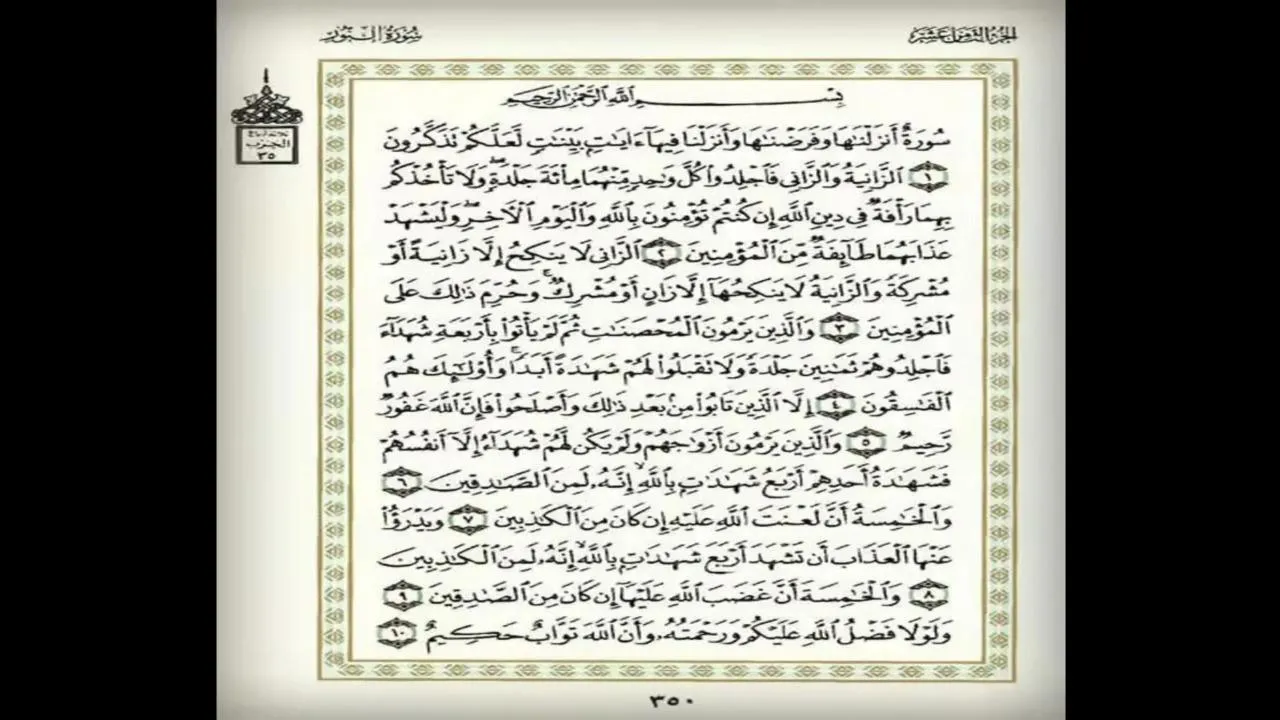 الجزء الثامن عشر
سورة النور
ثلاثة أرباع
الحزب
٣٥
بِسْمِ ٱللَّهِ ٱلرَّحْمَٰنِ ٱلرَّحِيمِ
سُورَةٌ أَنزَلْنَٰهَا وَفَرَضْنَٰهَا وَأَنزَلْنَا فِيهَآ ءَايَٰتٍۭ بَيِّنَٰتٍ لَّعَلَّكُمْ تَذَكَّرُونَ
١ ٱلزَّانِيَةُ وَٱلزَّانِى فَٱجْلِدُوا۟ كُلَّ وَٰحِدٍ مِّنْهُمَا مِا۟ئَةَ جَلْدَةٍ ۖ وَلَا تَأْخُذْكُم
بِهِمَا رَأْفَةٌ فِى دِينِ ٱللَّهِ إِن كُنتُمْ تُؤْمِنُونَ بِٱللَّهِ وَٱلْيَوْمِ ٱلْءَاخِرِ ۖ وَلْيَشْهَدْ
عَذَابَهُمَا طَآئِفَةٌ مِّنَ ٱلْمُؤْمِنِينَ ٢ ٱلزَّانِى لَا يَنكِحُ إِلَّا زَانِيَةً أَوْ
مُشْرِكَةً وَٱلزَّانِيَةُ لَا يَنكِحُهَآ إِلَّا زَانٍ أَوْ مُشْرِكٌ ۚ وَحُرِّمَ ذَٰلِكَ عَلَى
ٱلْمُؤْمِنِينَ ٣ وَٱلَّذِينَ يَرْمُونَ ٱلْمُحْصَنَٰتِ ثُمَّ لَمْ يَأْتُوا۟ بِأَرْبَعَةِ شُهَدَآءَ
فَٱجْلِدُوهُمْ ثَمَٰنِينَ جَلْدَةً وَلَا تَقْبَلُوا۟ لَهُمْ شَهَٰدَةً أَبَدًا ۚ وَأُو۟لَٰٓئِكَ هُمُ
ٱلْفَٰسِقُونَ ٤ إِلَّا ٱلَّذِينَ تَابُوا۟ مِنۢ بَعْدِ ذَٰلِكَ وَأَصْلَحُوا۟ فَإِنَّ ٱللَّهَ غَفُورٌ
رَّحِيمٌ ٥ وَٱلَّذِينَ يَرْمُونَ أَزْوَٰجَهُمْ وَلَمْ يَكُن لَّهُمْ شُهَدَآءُ إِلَّآ أَنفُسُهُمْ
فَشَهَٰدَةُ أَحَدِهِمْ أَرْبَعُ شَهَٰدَٰتٍۭ بِٱللَّهِ ۙ إِنَّهُۥ لَمِنَ ٱلصَّٰدِقِينَ ٦
وَٱلْخَٰمِسَةُ أَنَّ لَعْنَتَ ٱللَّهِ عَلَيْهِ إِن كَانَ مِنَ ٱلْكَٰذِبِينَ ٧ وَيَدْرَؤُا۟
عَنْهَا ٱلْعَذَابَ أَن تَشْهَدَ أَرْبَعَ شَهَٰدَٰتٍۭ بِٱللَّهِ ۙ إِنَّهُۥ لَمِنَ ٱلْكَٰذِبِينَ
٨ وَٱلْخَٰمِسَةَ أَنَّ غَضَبَ ٱللَّهِ عَلَيْهَآ إِن كَانَ مِنَ ٱلصَّٰدِقِينَ ٩
وَلَوْلَا فَضْلُ ٱللَّهِ عَلَيْكُمْ وَرَحْمَتُهُۥ وَأَنَّ ٱللَّهَ تَوَّابٌ حَكِيمٌ ١٠
٣٥٠